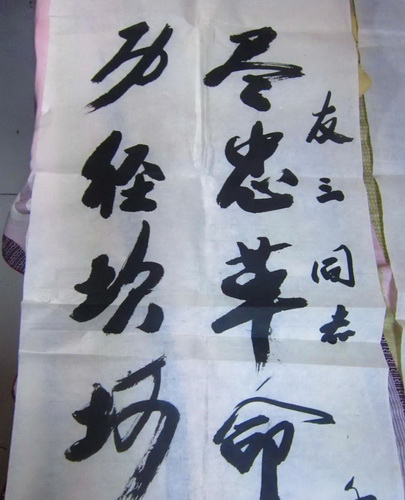 友三同志
尽忠革命
历经坎坷